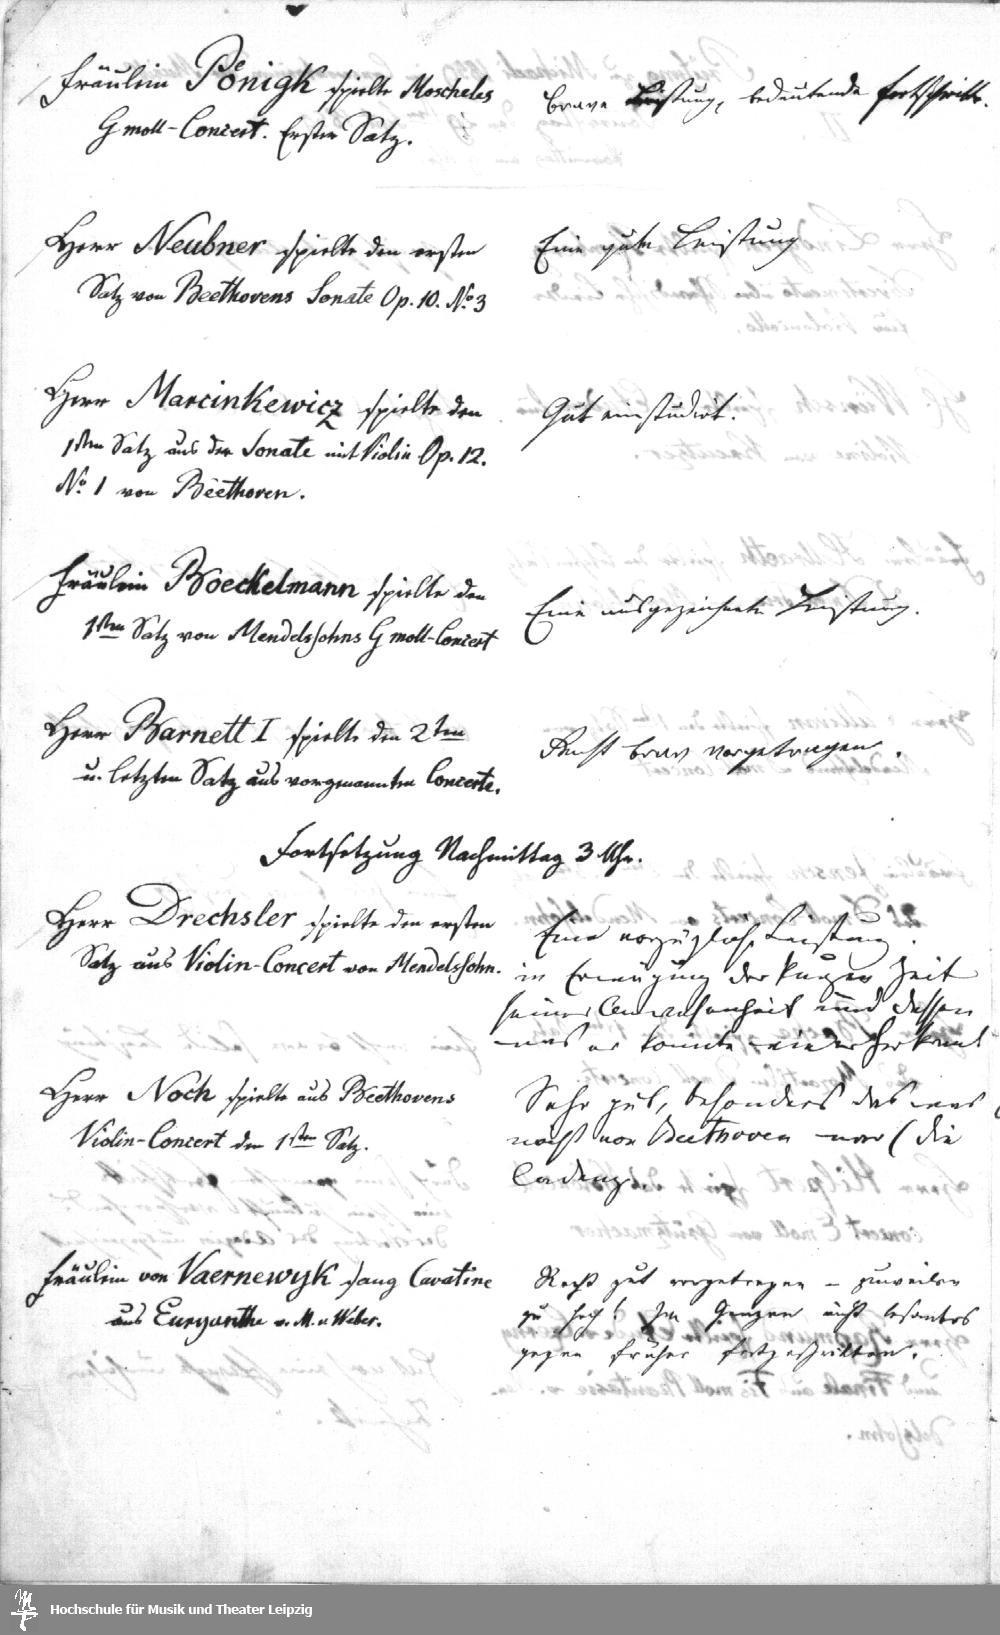 Fräulein Pönigk spielte Moscheles
G moll-Concert. Erster Satz.
Brave Leistung, bedeutende Fortschritte.
Herr Neubner spielte den ersten
Satz von Beethovens Sonate Op. 10. No. 3
Eine gute Leistung
Herr Marcinkewicz spielte den
1sten Satz aus der Sonate mit Violin Op. 12.
No. 1 von Beethoven.
Gut einstudirt.
Fräulein Boeckelmann spielte den
1sten Satz von Mendelssohns G moll-Concert
Eine ausgezeichnete Leistung.
Herr Barnett I spielte den 2ten
u. letzten Satz aus vorgenannten Concerte.
Recht brav vorgetragen.
Fortsetzung Nachmittag 3 Uhr.
Herr Drechsler spielte den ersten
Satz aus Violin-Concert von Mendelssohn.
Eine vorzügliche Leistung.
in Erwägung der kurzen Zeit
seiner Anwesenheit und dessen
was er konnte
Herr Noch spielte aus Beethovens
Violin-Concert den 1sten Satz.
Sehr gut, besonders das was
nicht von Beethoven war (die
Cadenz).
Fräulein von Vaernewyk sang Cavatine
aus Euryanthe v. M. v. Weber.
Recht gut vorgetragen – zuweilen
zu hoch! Im Ganzen nicht besonders
gegen früher fortgeschritten.
Hochschule für Musik und Theater Leipzig